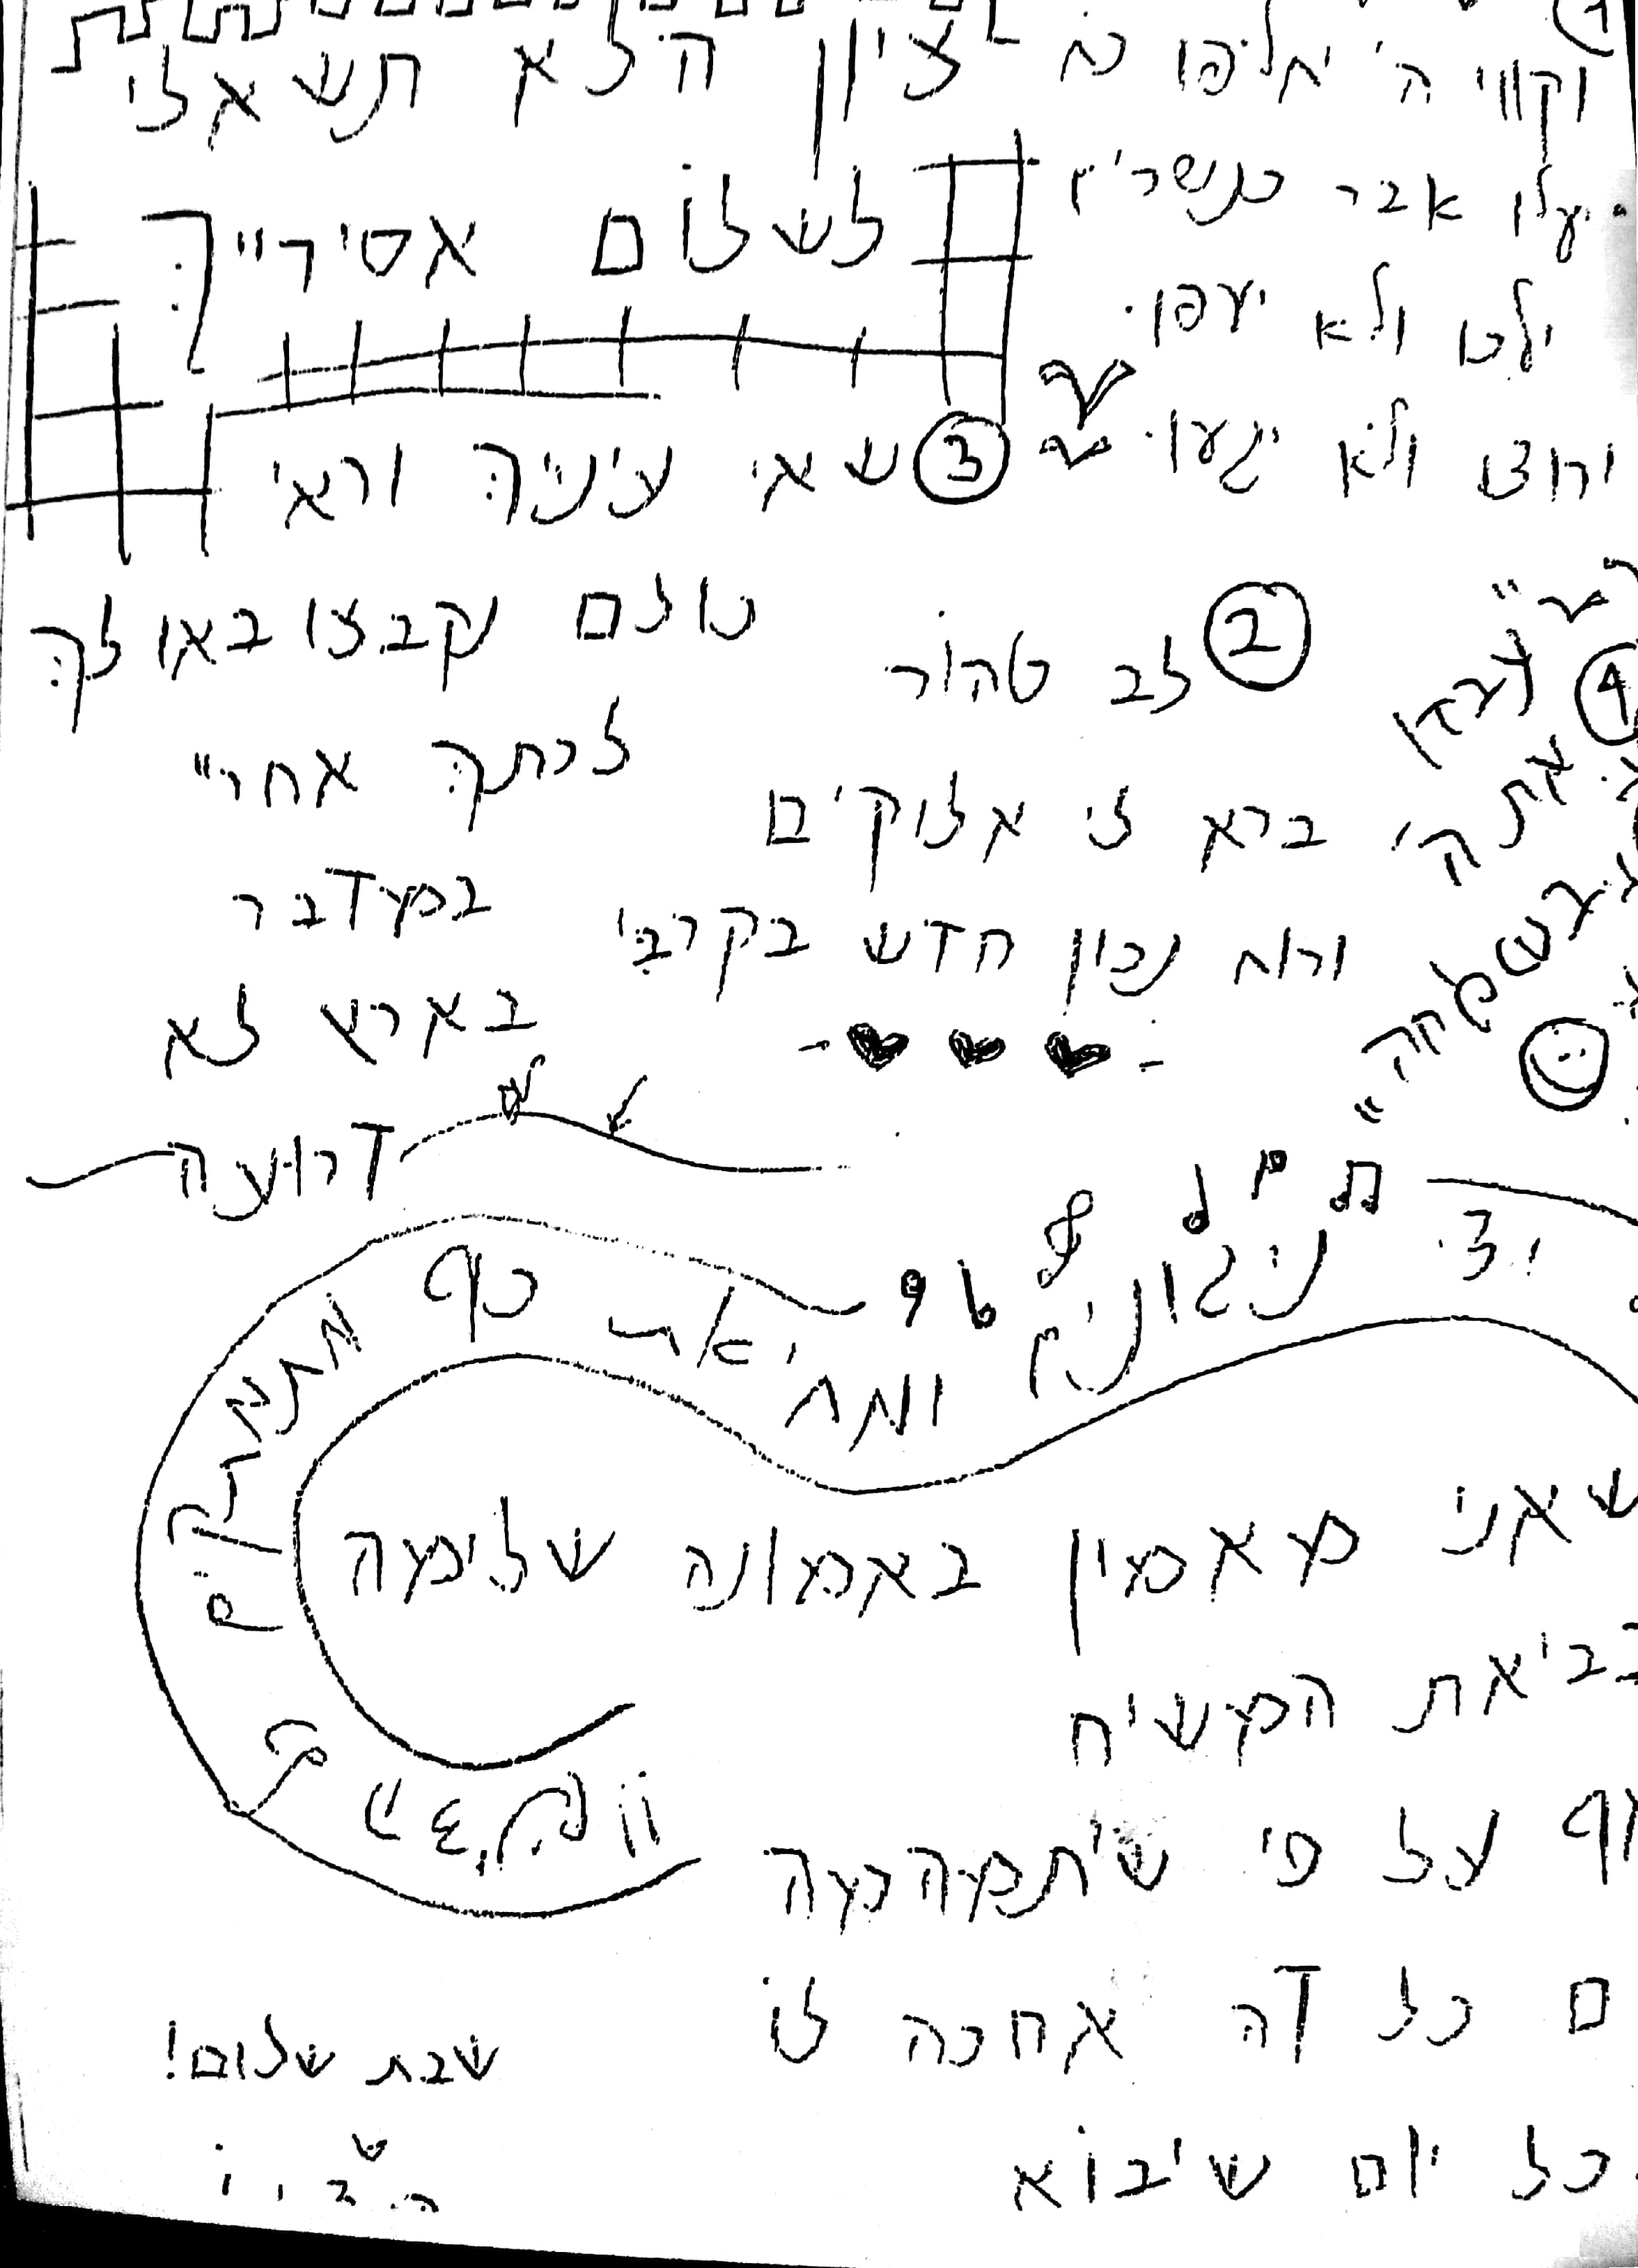 וקווי ה' יחליפו כח
יעלו אבר כנשרים
ילכו ולא יעפו.
ירוצו ולא יגעו.
ציון הלא תשאלי
לשלום אסירייך
③ שאי עיניך וראי
כולם נקבצו באו לך
לכתך אחריי
במדבר
בארץ לא
זרועה
② לב טהור
ברא לי אלוקים
ורוח נכון חדש בקרבי
④
את ה'
בשמחה"
ניגונים
ומחיאות כף
שאני מאמין באמונה שלימה
בביאת המשיח
אף על פי שיתמהמה
ם כל זה אחכה לו
כל יום שיבוא
שבת שלום!